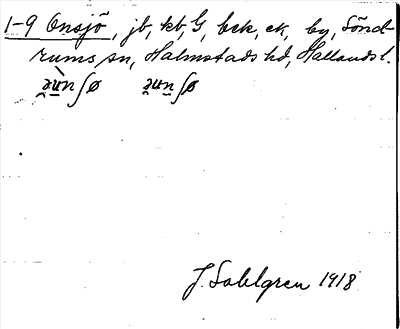 1-9 Onsjö, jb, kb, G, bck, ck, by, Sönd-
rums sn, Halmstads hd, Hallands l.
J. Sahlgren 1918